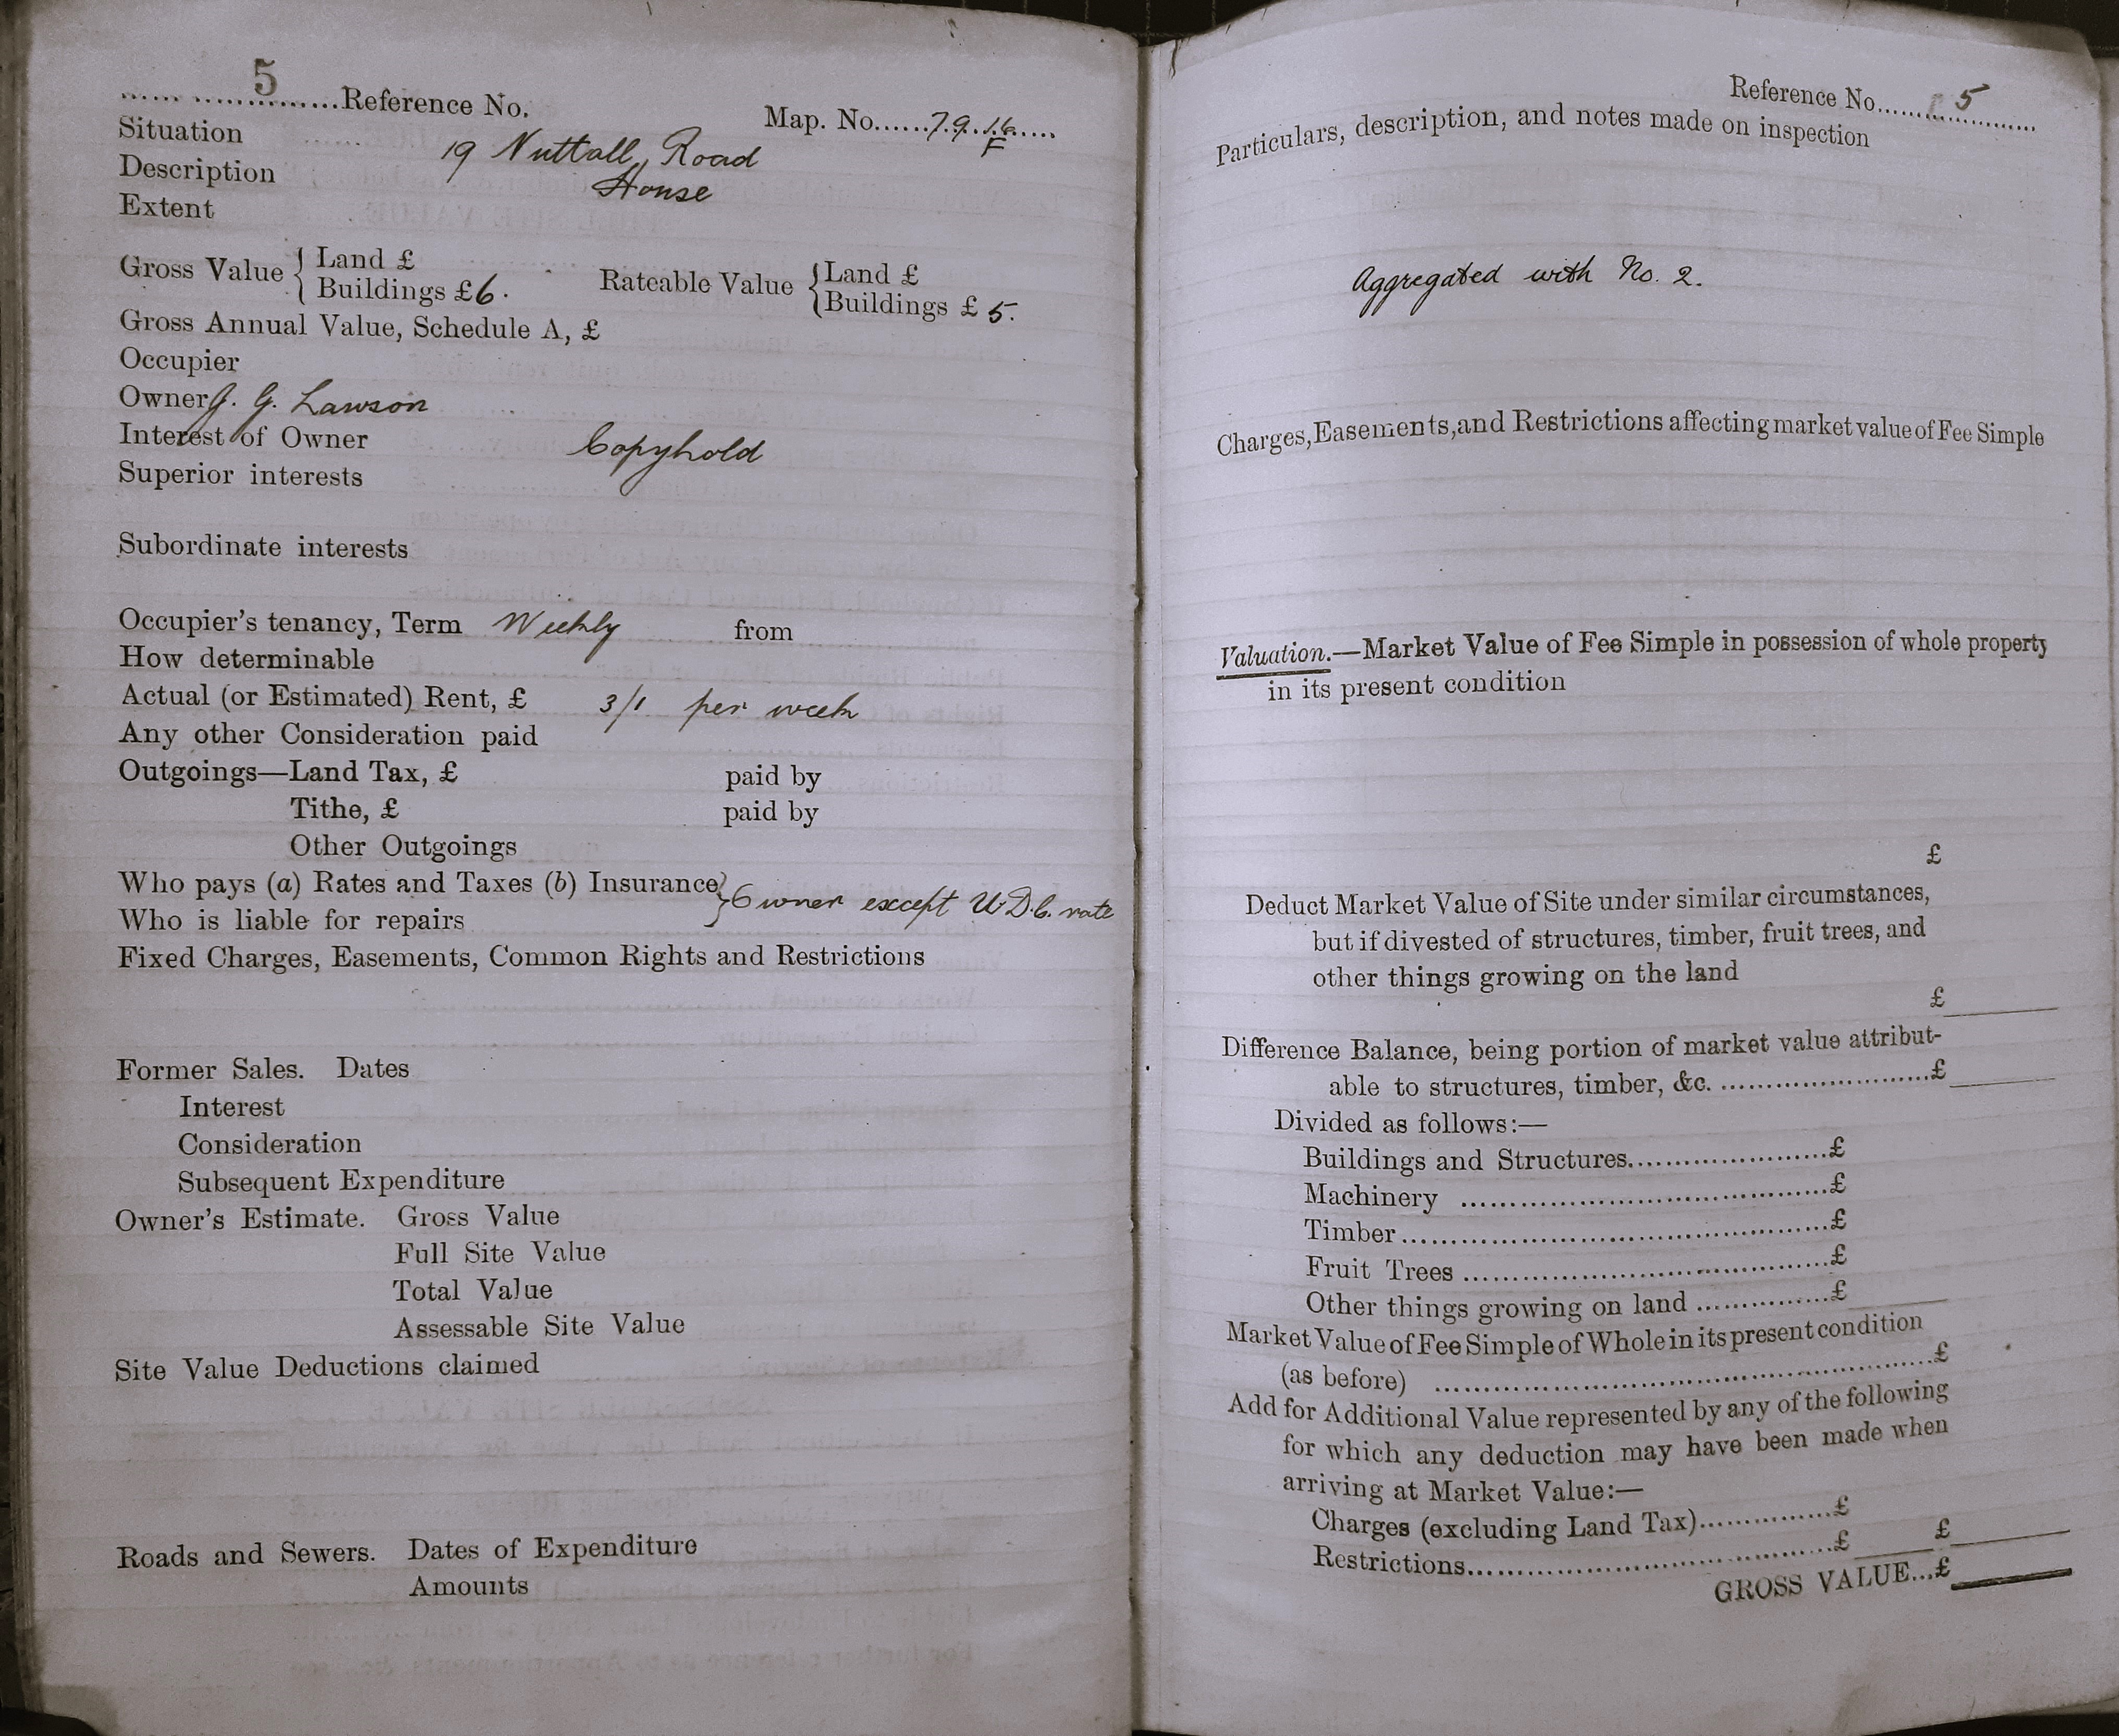 5
...... ...............Reference No.
Map. No......7.9.16.....
F
Situation 19 Nuttall Road
Description House
Extent
Gross Value { Land £
Buildings £6.
Rateable Value { Land £
Buildings £ 5.
Gross Annual Value, Schedule A, £
Occupier
Owner J. G. Lawson
Interest of Owner Copyhold
Superior interests
Subordinate interests
Occupier's tenancy, Term Weekly from
How determinable
Actual (or Estimated) Rent, £ 3/1 per week
Any other Consideration paid
Outgoings—Land Tax, £ paid by
Tithe, £ paid by
Other Outgoings
Who pays (a) Rates and Taxes (b) Insurance } Owner except U.D.C. rate
Who is liable for repairs
Fixed Charges, Easements, Common Rights and Restrictions
Former Sales. Dates
Interest
Consideration
Subsequent Expenditure
Owner's Estimate. Gross Value
Full Site Value
Total Value
Assessable Site Value
Site Value Deductions claimed
Roads and Sewers. Dates of Expenditure
Amounts
Reference No......5..........
Particulars, description, and notes made on inspection
Aggregated with No. 2.
Charges, Easements, and Restrictions affecting market value of Fee Simple
Valuation.—Market Value of Fee Simple in possession of whole property
in its present condition
£
Deduct Market Value of Site under similar circumstances,
but if divested of structures, timber, fruit trees, and
other things growing on the land
£
Difference Balance, being portion of market value attribut-
able to structures, timber, &c. ........................£
Divided as follows:—
Buildings and Structures......................£
Machinery ........................................£
Timber..............................................£
Fruit Trees ........................................£
Other things growing on land ...............£
Market Value of Fee Simple of Whole in its present condition
(as before) .......................................................£
Add for Additional Value represented by any of the following
for which any deduction may have been made when
arriving at Market Value:—
Charges (excluding Land Tax)...............£
Restrictions.........................................£ £
GROSS VALUE...£